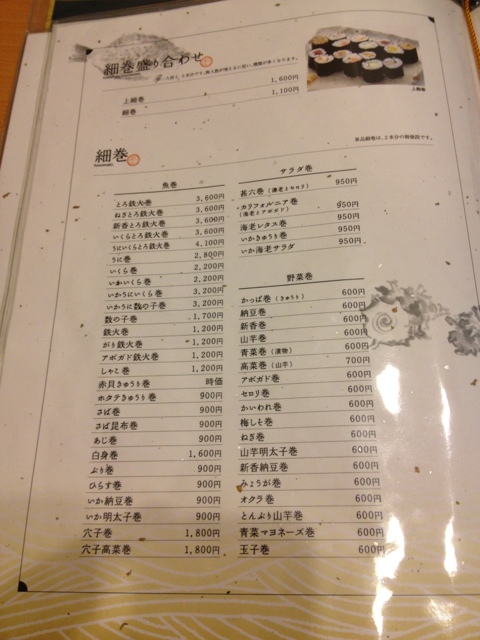 細巻盛り合わせ
上細巻 1,600円
細巻 1,100円
上細巻
単品細巻は、2本分の御値段です。
細巻
魚巻
とろ鉄火巻 3,600円
ねぎとろ鉄火巻 3,600円
新香とろ鉄火巻 3,600円
いくらとろ鉄火巻 3,600円
うにいくらとろ鉄火巻 4,100円
うに巻 2,800円
いくら巻 2,200円
いかいくら巻 2,200円
いかうにいくら巻 3,200円
いかうに数の子巻 3,200円
数の子巻 1,700円
鉄火巻 1,200円
がり鉄火巻 1,200円
アボガド鉄火巻 1,200円
しゃこ巻 1,200円
赤貝きゅうり巻 時価
ホタテきゅうり巻 900円
さば巻 900円
さば昆布巻 900円
あじ巻 900円
白身巻 1,600円
ぶり巻 900円
ひらす巻 900円
いか納豆巻 900円
いか明太子巻 900円
穴子巻 1,800円
穴子高菜巻 1,800円
サラダ巻
甚六巻(海老とセロリ) 950円
カリフォルニア巻 950円
(海老とアボガド)
海老レタス巻 950円
いかきゅうり巻 950円
いか海老サラダ 950円
野菜巻
かっぱ巻(きゅうり) 600円
納豆巻 600円
新香巻 600円
山芋巻 600円
青菜巻(漬物) 600円
高菜巻(山芋) 700円
アボガド巻 600円
セロリ巻 600円
かいわれ巻 600円
梅しそ巻 600円
ねぎ巻 600円
山芋明太子巻 600円
新香納豆巻 600円
みょうが巻 600円
オクラ巻 600円
とんぶり山芋巻 600円
青菜マヨネーズ巻 600円
玉子巻 600円